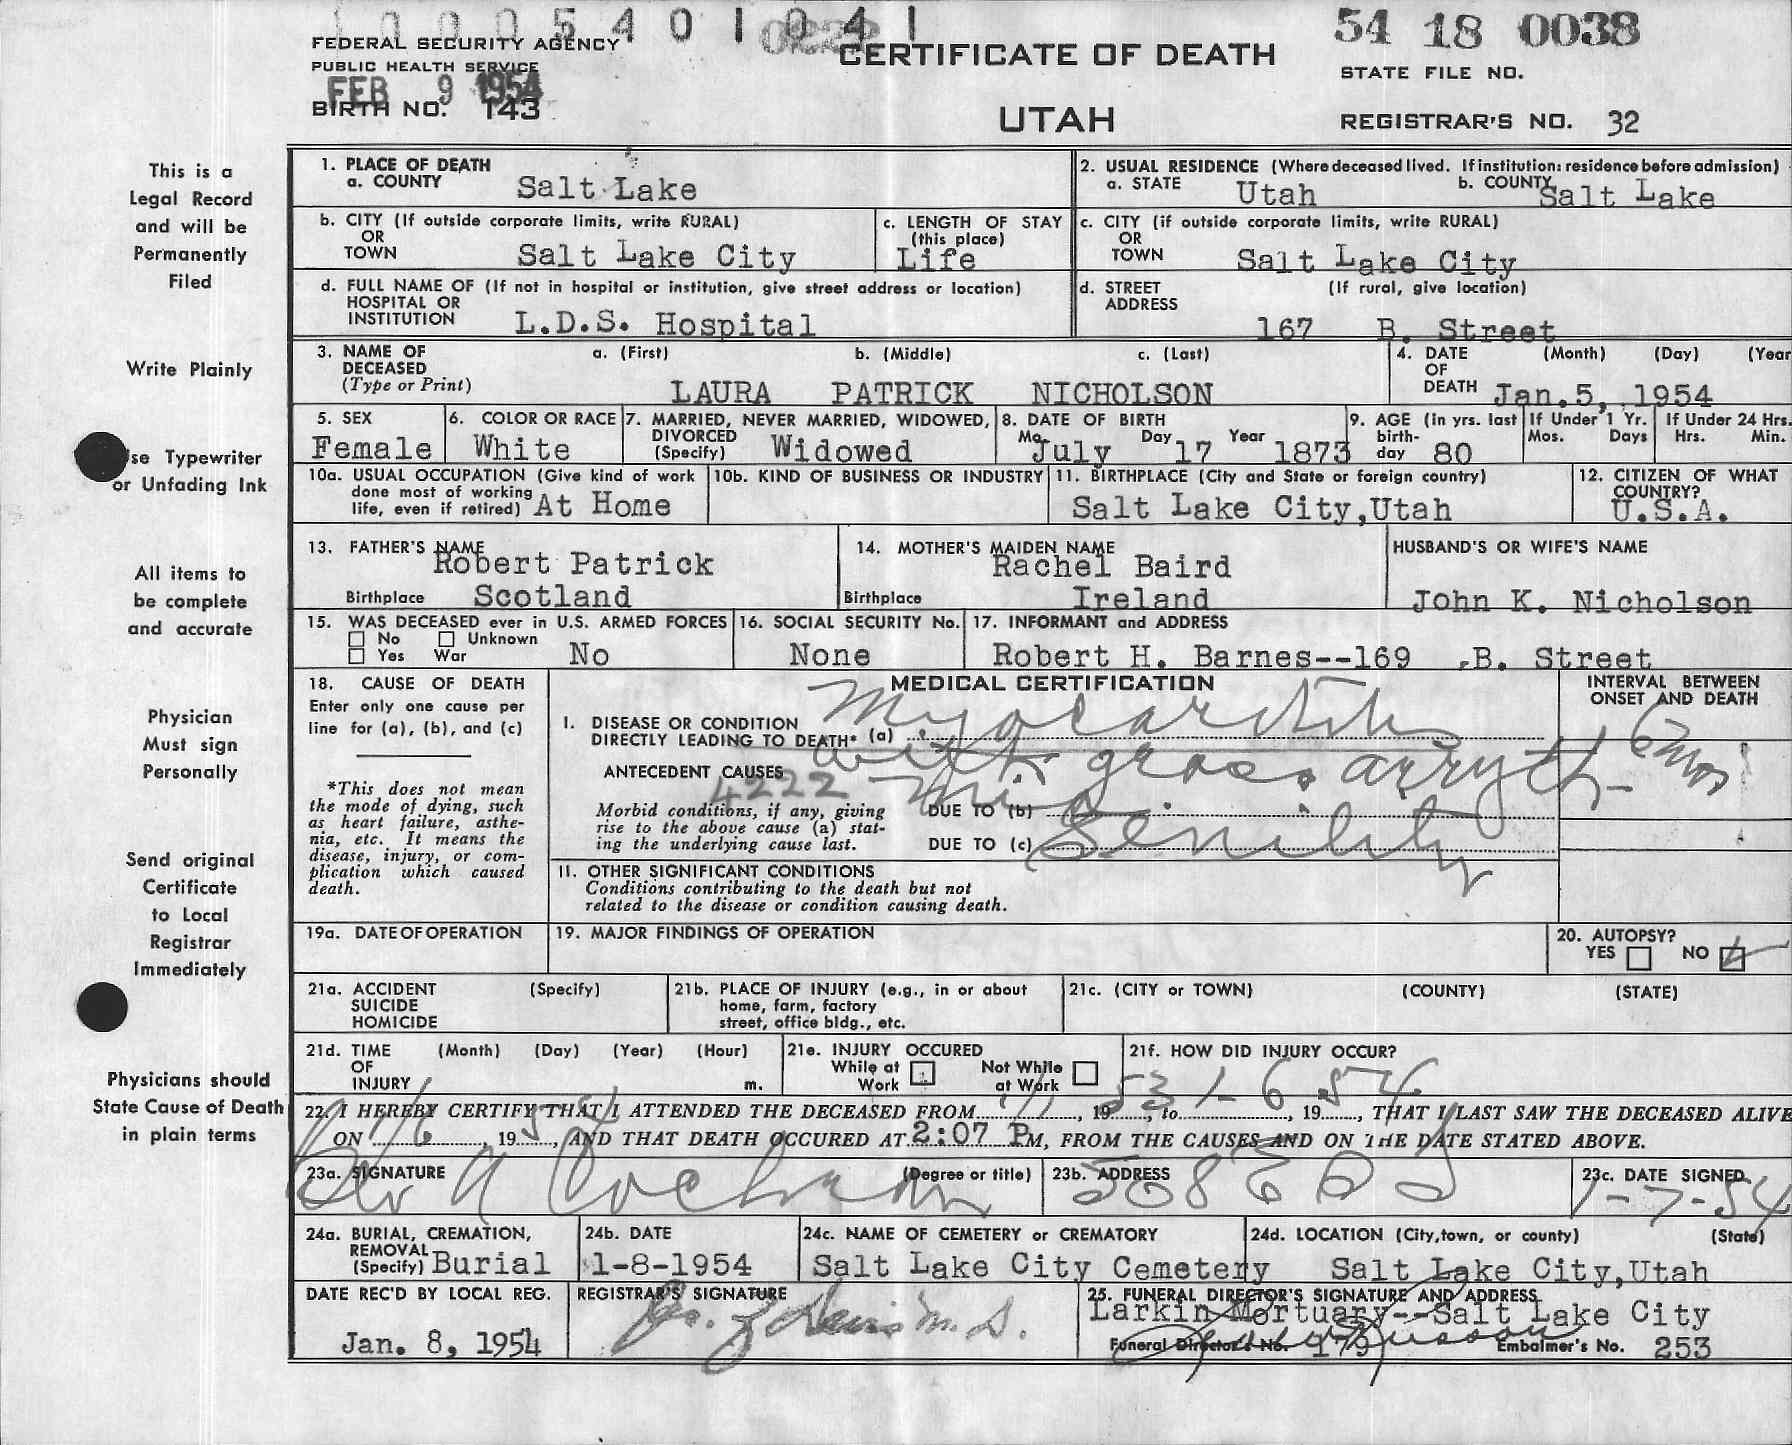 1 0 0 0 5 4 0 1 0 4 1
54 18 0038
FEDERAL SECURITY AGENCY
PUBLIC HEALTH SERVICE
FEB 9 1954
BIRTH NO. 143
CERTIFICATE OF DEATH
UTAH
STATE FILE NO.
REGISTRAR'S NO. 32
This is a
Legal Record
and will be
Permanently
Filed
Write Plainly
se Typewriter
or Unfading Ink
All items to
be complete
and accurate
Physician
Must sign
Personally
Send original
Certificate
to Local
Registrar
Immediately
Physicians should
State Cause of Death
in plain terms
1. PLACE OF DEATH
a. COUNTY Salt Lake
2. USUAL RESIDENCE (Where deceased lived. If institution: residence before admission)
a. STATE Utah b. COUNTY Salt Lake
b. CITY (If outside corporate limits, write RURAL)
OR
TOWN Salt Lake City
c. LENGTH OF STAY
(this place)
Life
c. CITY (if outside corporate limits, write RURAL)
OR
TOWN Salt Lake City
d. FULL NAME OF (If not in hospital or institution, give street address or location)
HOSPITAL OR
INSTITUTION L.D.S. Hospital
d. STREET (If rural, give location)
ADDRESS
167 B. Street
3. NAME OF a. (First) b. (Middle) c. (Last)
DECEASED
(Type or Print) LAURA PATRICK NICHOLSON
4. DATE (Month) (Day) (Year
OF
DEATH Jan.5, 1954
5. SEX
Female
6. COLOR OR RACE
White
7. MARRIED, NEVER MARRIED, WIDOWED,
DIVORCED
(Specify) Widowed
8. DATE OF BIRTH
Mo. Day Year
July 17 1873
9. AGE (in yrs. last
birth-
day 80
If Under 1 Yr.
Mos. Days
If Under 24 Hrs.
Hrs. Min.
10a. USUAL OCCUPATION (Give kind of work
done most of working
life, even if retired) At Home
10b. KIND OF BUSINESS OR INDUSTRY
11. BIRTHPLACE (City and State or foreign country)
Salt Lake City,Utah
12. CITIZEN OF WHAT
COUNTRY?
U.S.A.
13. FATHER'S NAME
Robert Patrick
Birthplace Scotland
14. MOTHER'S MAIDEN NAME
Rachel Baird
Birthplace Ireland
HUSBAND'S OR WIFE'S NAME
John K. Nicholson
15. WAS DECEASED ever in U.S. ARMED FORCES
No Unknown
Yes War No
16. SOCIAL SECURITY No.
None
17. INFORMANT and ADDRESS
Robert H. Barnes--169 B. Street
18. CAUSE OF DEATH
Enter only one cause per
line for (a), (b), and (c)
*This does not mean
the mode of dying, such
as heart failure, asthe-
nia, etc. It means the
disease, injury, or com-
plication which caused
death.
MEDICAL CERTIFICATION
I. DISEASE OR CONDITION
DIRECTLY LEADING TO DEATH* (a) Myocarditis
with gross arryth-
ANTECEDENT CAUSES
4222
Morbid conditions, if any, giving
rise to the above cause (a) stat-
ing the underlying cause last.
DUE TO (b) mia
DUE TO (c) Senility
INTERVAL BETWEEN
ONSET AND DEATH
6 mos
II. OTHER SIGNIFICANT CONDITIONS
Conditions contributing to the death but not
related to the disease or condition causing death.
19a. DATE OF OPERATION
19. MAJOR FINDINGS OF OPERATION
20. AUTOPSY?
YES NO
21a. ACCIDENT (Specify)
SUICIDE
HOMICIDE
21b. PLACE OF INJURY (e.g., in or about
home, farm, factory
street, office bldg., etc.
21c. (CITY or TOWN) (COUNTY) (STATE)
21d. TIME (Month) (Day) (Year) (Hour)
OF
INJURY m.
21e. INJURY OCCURED
While at Work Not While at Work
21f. HOW DID INJURY OCCUR?
22. I HEREBY CERTIFY THAT I ATTENDED THE DECEASED FROM , 1953 to 1-6-54, 19 , THAT I LAST SAW THE DECEASED ALIVE
ON 1/6, 19 , AND THAT DEATH OCCURED AT 2:07 PM, FROM THE CAUSES AND ON THE DATE STATED ABOVE.
23a. SIGNATURE (Degree or title)
Cochran
23b. ADDRESS
508 E
23c. DATE SIGNED
1-7-54
24a. BURIAL, CREMATION,
REMOVAL
(Specify) Burial
24b. DATE
1-8-1954
24c. NAME OF CEMETERY or CREMATORY
Salt Lake City Cemetery
24d. LOCATION (City, town, or county) (State)
Salt Lake City,Utah
DATE REC'D BY LOCAL REG.
Jan. 8, 1954
REGISTRAR'S SIGNATURE
M.D.
25. FUNERAL DIRECTOR'S SIGNATURE AND ADDRESS
Larkin Mortuary--Salt Lake City
Funeral Director's No. 179 Embalmer's No. 253